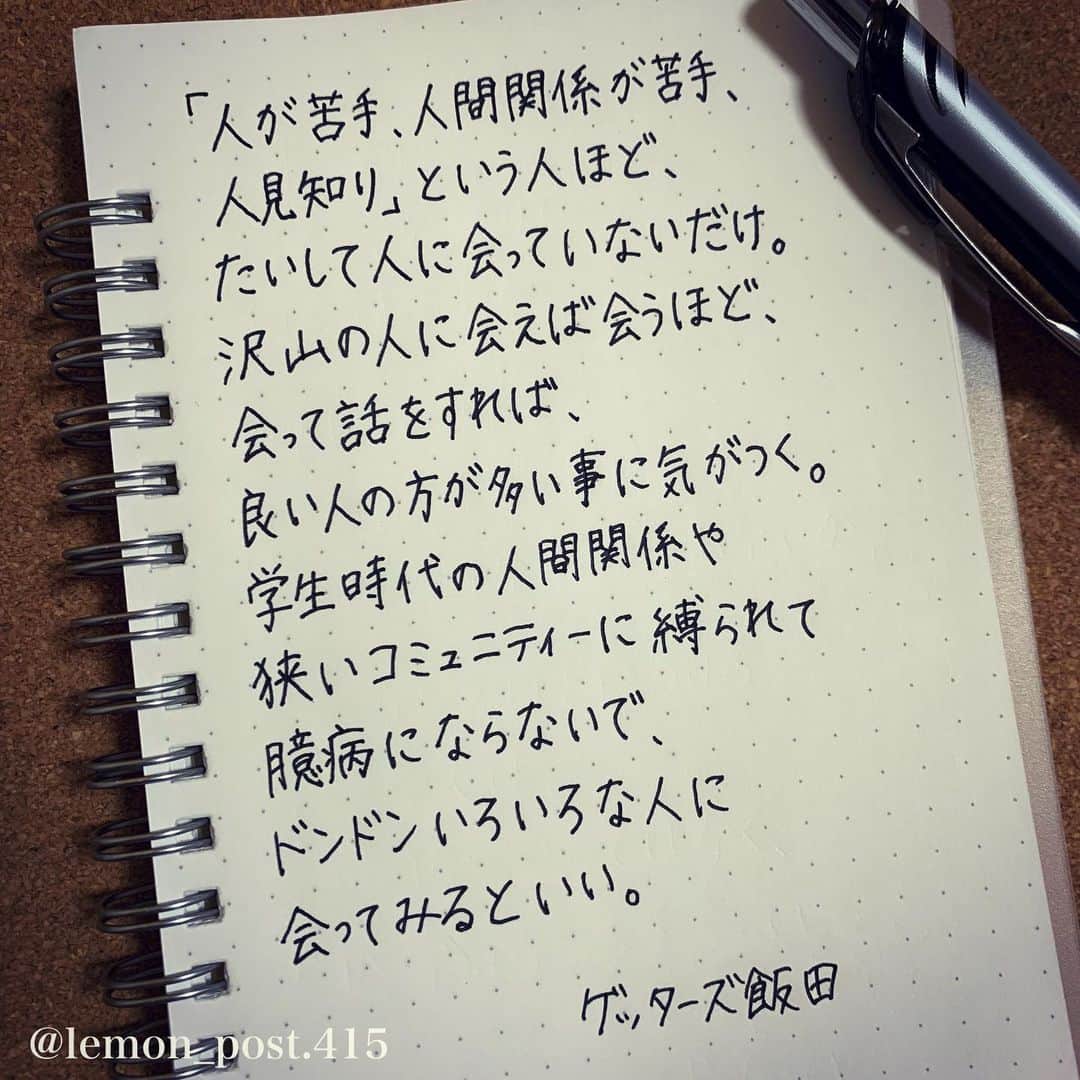 「人が苦手、人間関係が苦手、
人見知り」という人ほど、
たいして人に会っていないだけ。
沢山の人に会えば会うほど、
会って話をすれば、
良い人の方が多い事に気がつく。
学生時代の人間関係や
狭いコミュニティーに縛られて
臆病にならないで、
ドンドンいろいろな人に
会ってみるといい。
ゲッターズ飯田
@lemon_post.415